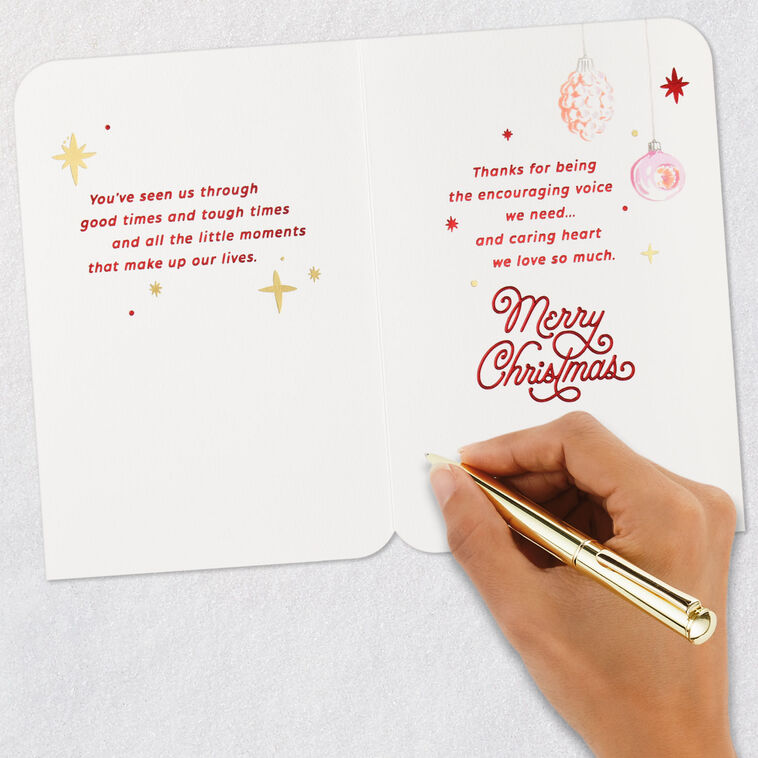 You've seen us through
good times and tough times
and all the little moments
that make up our lives.
Thanks for being
the encouraging voice
we need...
and caring heart
we love so much.
Merry
Christmas